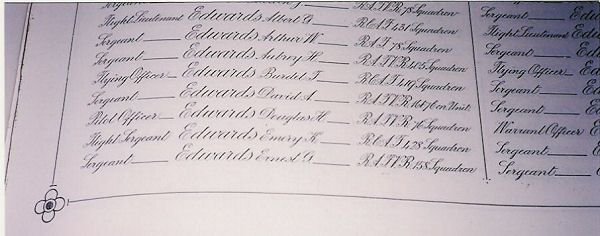 Flight Lieutenant Edwards Albert G. R.C.A.F. 431 Squadron
Sergeant Edwards Arthur W. R.A.F. 78 Squadron
Sergeant Edwards Aubrey H. R.A.F.V.R. 405 Squadron
Flying Officer Edwards Burdel F. R.C.A.F. 419 Squadron
Sergeant Edwards David A. R.A.F.V.R. Con Unit
Pilot Officer Edwards Douglas H. R.A.F.V.R. 76 Squadron
Flight Sergeant Edwards Emery K. R.C.A.F. 428 Squadron
Sergeant Edwards Ernest G. R.A.F.V.R. 158 Squadron
Sergeant
Flight Lieutenant
Sergeant
Flying Officer
Sergeant
Sergeant
Warrant Officer
Sergeant
Sergeant